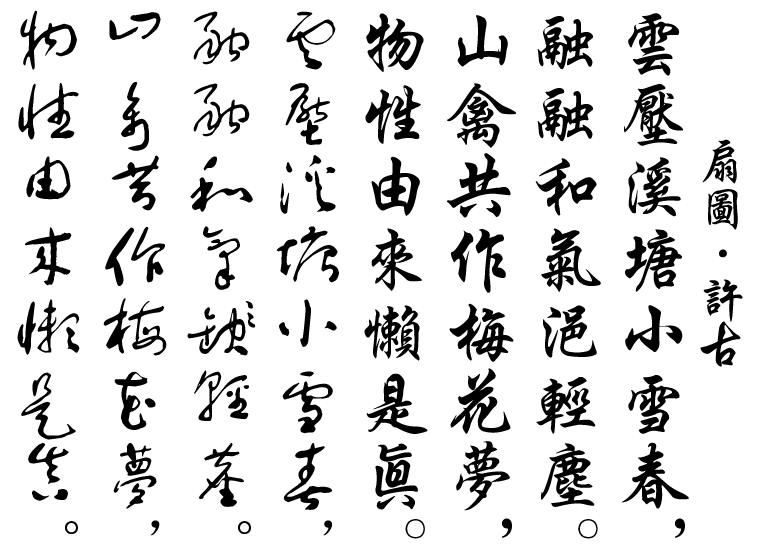 扇圖・許古
雲壓溪塘小雪春，
融融和氣浥輕塵。
山禽共作梅花夢，
物性由來懶是眞。
雲壓溪塘小雪春，
融融和氣輕塵。
山禽共作梅花夢，
物性由來懶是真。